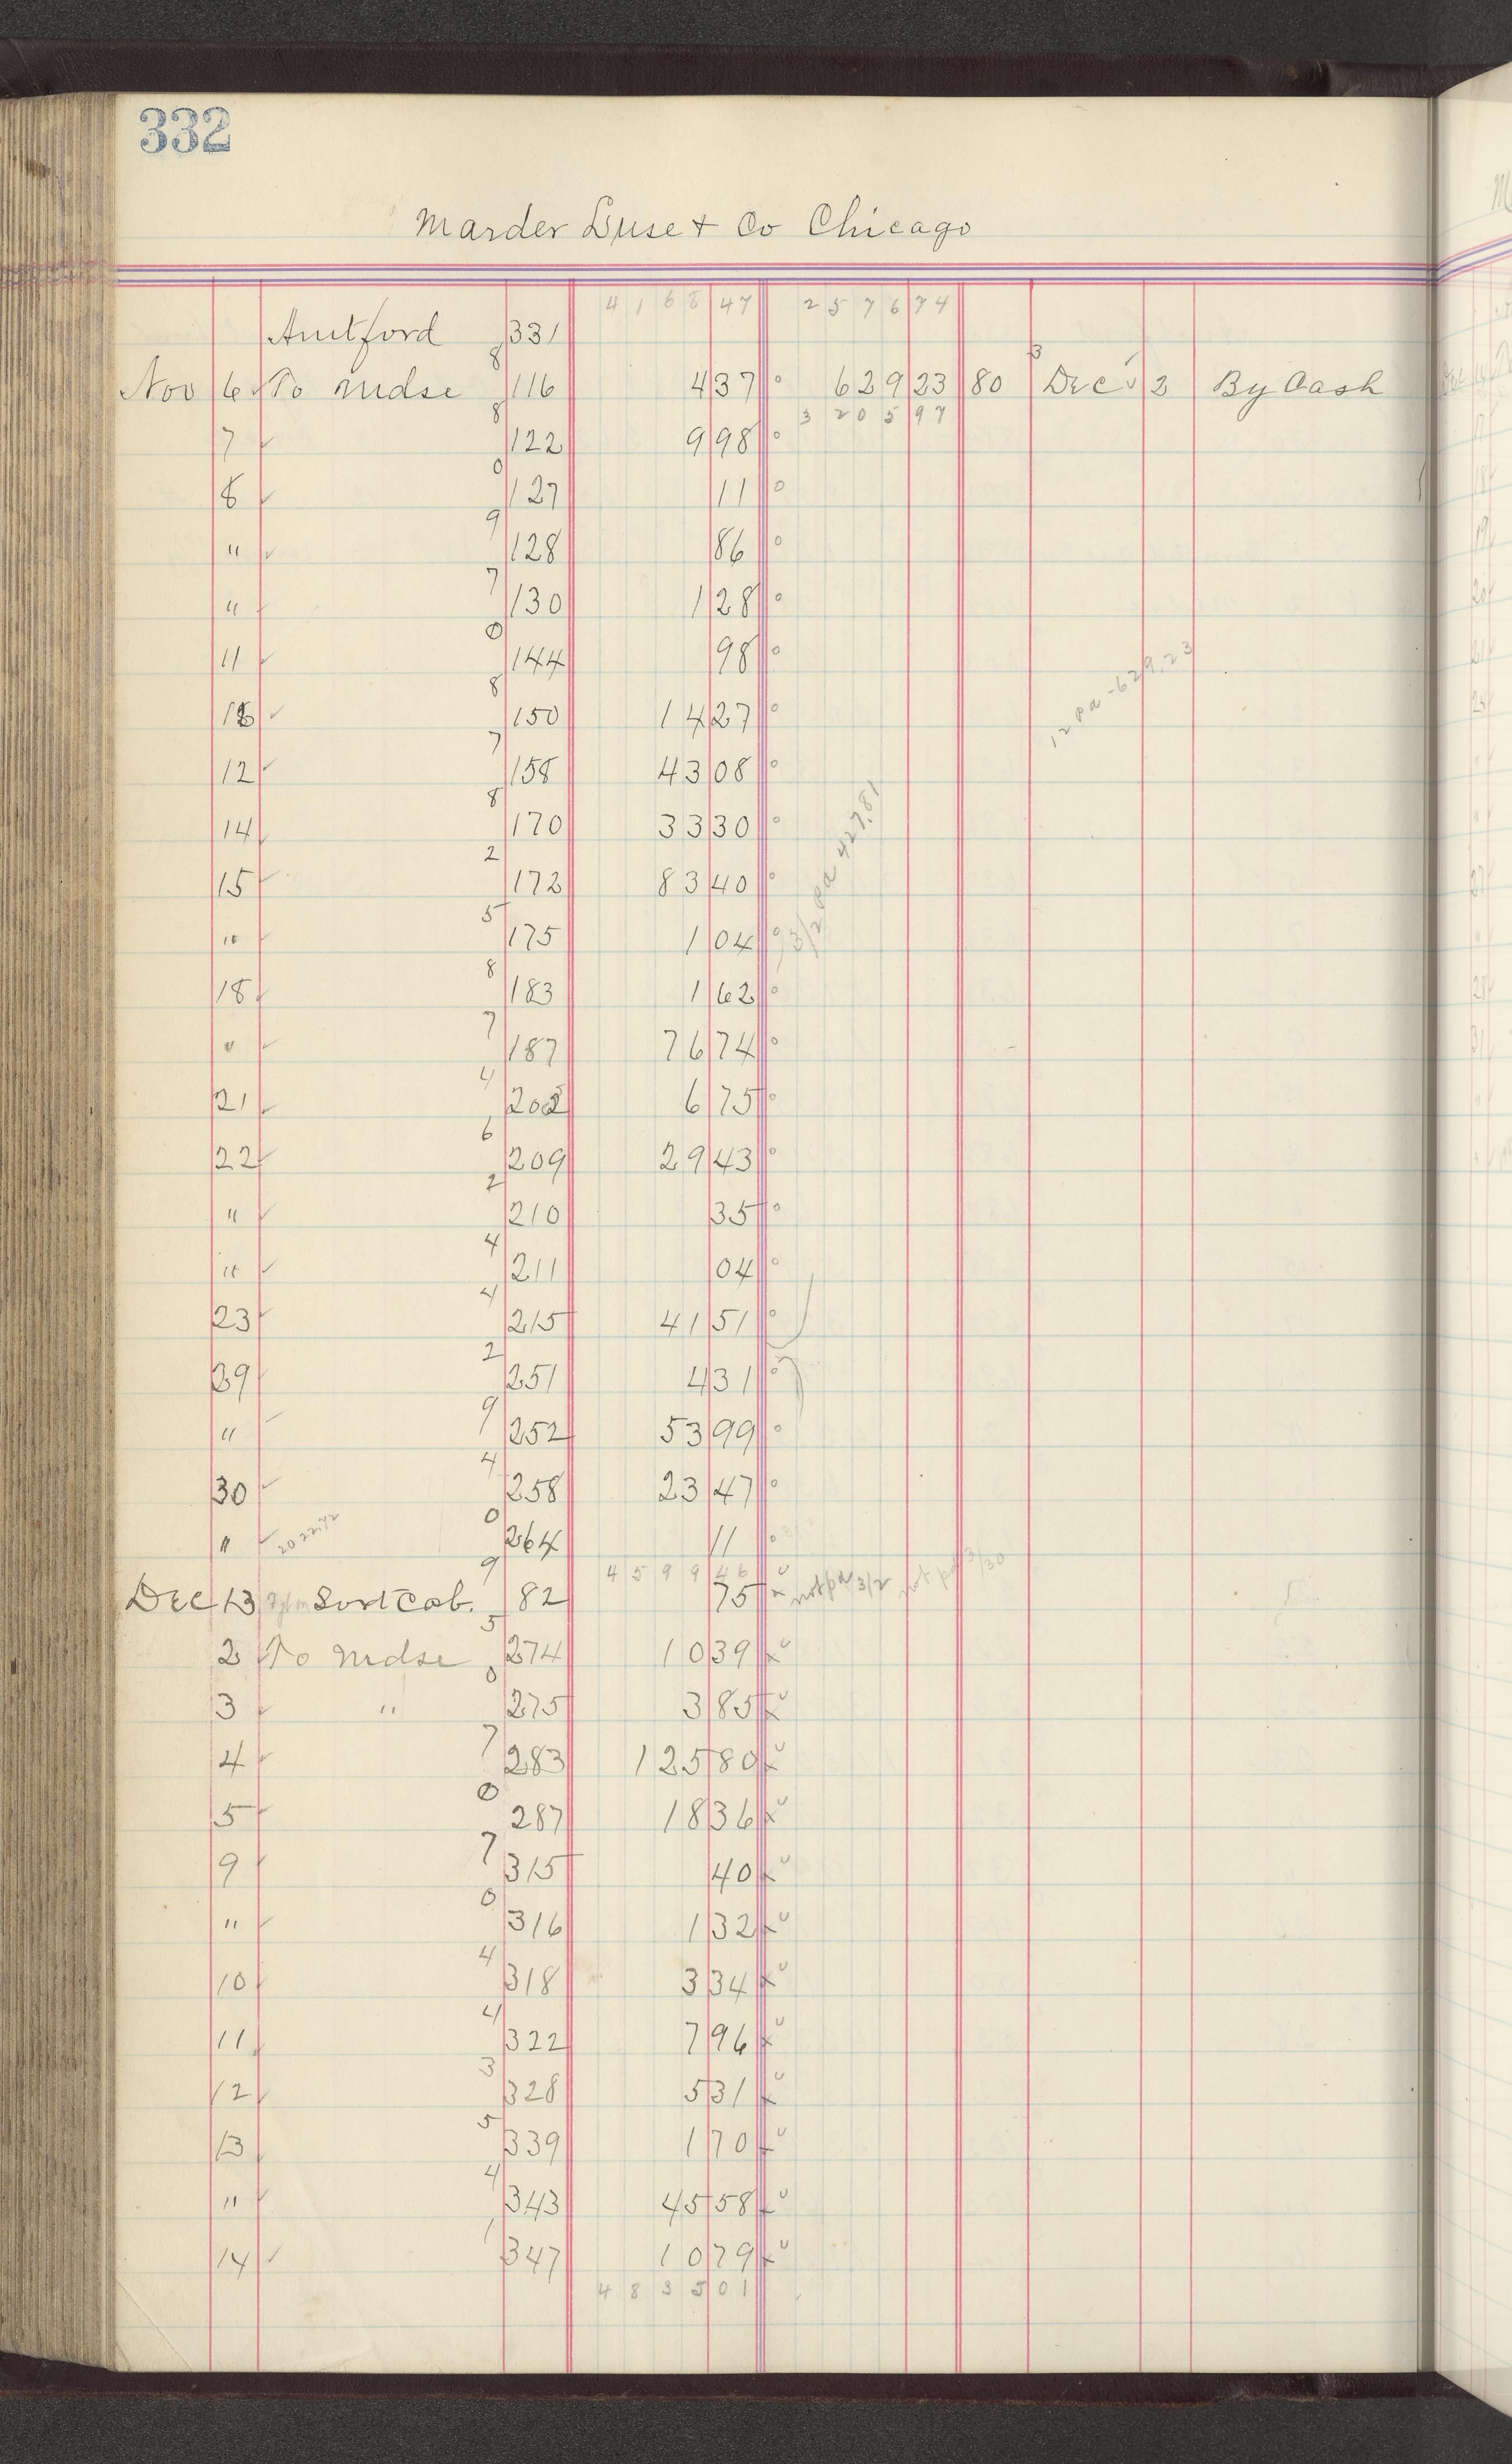 332
Marder Luse & Co Chicago
4168 47 2576 74
Amt ford 331
Nov 6 To mdse 8 116 4 37 629 23 80 Dec 2 By Cash
3205 97
7 8 122 9 98
8 0 127 11
" 9 128 86
" 7 130 1 28
11 0 144 98
8 150 14 27
12 7 158 43 08
14 8 170 33 30
15 2 172 83 40
" 5 175 1 04
18 8 183 1 62
" 7 187 76 74
21 4 202 6 75
22 6 209 29 43
" 2 210 35
" 4 211 04
23 4 215 41 51
29 2 251 4 31
" 9 252 53 99
30 4 258 23 47
" 0 264 11
12 pd - 629.23
3/2 pd 427.81
4599 46
Dec 13 Sort Cab. 9 82 75 x not pd 3/2 not pd 3/30
2 To mdse 5 274 10 39 x
3 " 0 275 3 85 x
4 7 283 125 80 x
5 0 287 18 36 x
9 7 315 40 x
" 0 316 1 32 x
10 4 318 3 34 x
11 4 322 7 96 x
12 3 328 5 31 x
13 5 339 1 70 x
" 4 343 45 58 x
14 1 347 10 79 x
4835 01